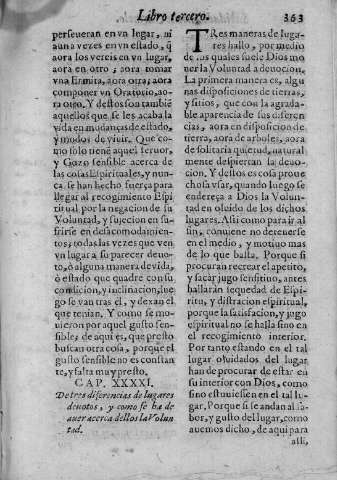 Libro tercero. 363
perseueran en vn lugar, ni
aun a vezes en vn estado, q̃
aora los vereis en vn lugar,
aora en otro; aora tomar
vna Ermita, aora otra; aora
componer vn Oratorio, ao-
ra otro. Y destos son tambiẽ
aquellos que se les acaba la
vida en mudanças de estado,
y modos de viuir. Que co-
mo solo tienē aquel feruor,
y Gozo sensible acerca de
las cosas Espirituales, y nun-
ca se han hecho fuerça para
llegar al recogimiento Espi-
ritual por la negacion de su
Voluntad, y sujecion en su-
frirse en desacomodamien-
tos; todas las vezes que ven
vn lugar a su parecer deuo-
to, ó alguna manera de vida,
ó estado que quadre con su
condicion, y inclinacion, lue-
go se van tras él, y dexan el
que tenian. Y como se mo-
uieron por aquel gusto sen-
sible, de aqui es, que presto
buscan otra cosa, porque el
gusto sensible no es constan-
te, y falta muy presto.
CAP. XXXXI.
De tres diferencias de lugares
deuotos, y como se ha de
auer acerca dellos la Volun-
tad.
TRes maneras de luga-
res hallo, por medio
de los quales suele Dios mo-
uer la Voluntad a deuocion.
La primera manera es, algu-
nas disposiciones de tierras,
y sitios, que con la agrada-
ble aparencia de sus diferen-
cias, aora en disposicion de
tierra, aora de arboles, aora
de solitaria quietud, natural
mente despiertan la deuo-
cion. Y dellos es cosa proue
chosa vsar, quando luego se
endereça a Dios la Volun-
tad en oluido de los dichos
lugares. Assi como para ir al
fin, conuiene no detenerse
en el medio, y motiuo mas
de lo que basta. Porque si
procuran recrear el apetito,
y sacar jugo sensitiuo, antes
hallarán sequedad de Espi-
ritu, y distracion espiritual,
porque la satisfacion, y jugo
espiritual no se halla sino en
el recogimiento interior.
Por tanto estando en el tal
lugar oluidados del lugar
han de procurar de estar en
su interior con Dios, como
sino estuuiessen en el tal lu-
gar. Porque si se andan al sa-
bor, y gusto del lugar, como
auemos dicho, de aqui para
alli,